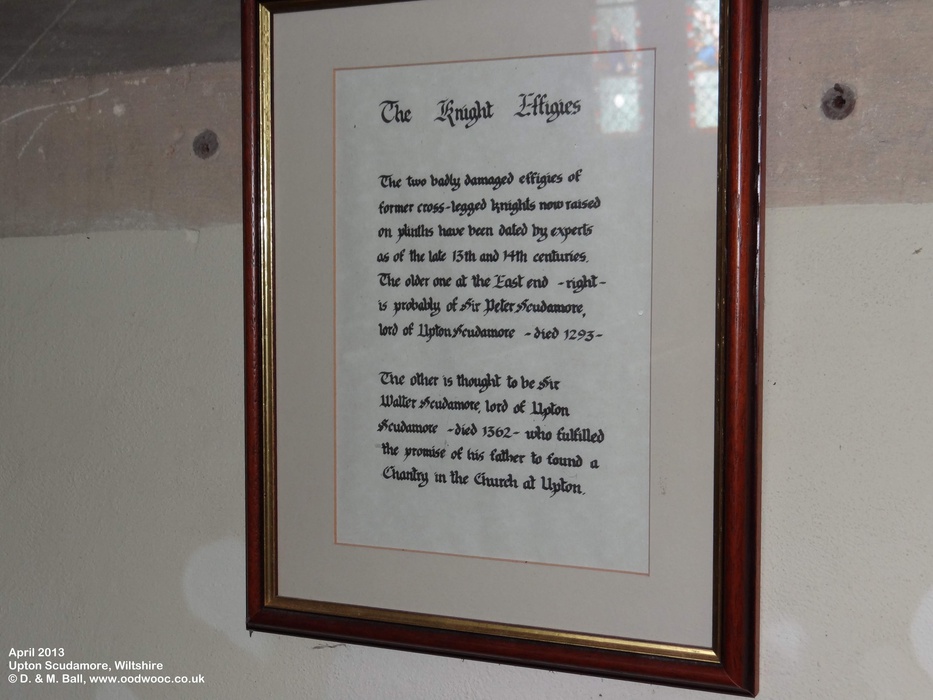 The Knight Effigies
The two badly damaged effigies of
former cross-legged knights now raised
on plinths have been dated by experts
as of the late 13th and 14th centuries.
The older one at the East end -right-
is probably of Sir Peter Scudamore,
lord of Upton Scudamore - died 1293-
The other is thought to be Sir
Walter Scudamore, lord of Upton
Scudamore -died 1362- who fulfilled
the promise of his father to found a
Chantry in the Church at Upton.
April 2013
Upton Scudamore, Wiltshire
© D. & M. Ball, www.oodwooc.co.uk